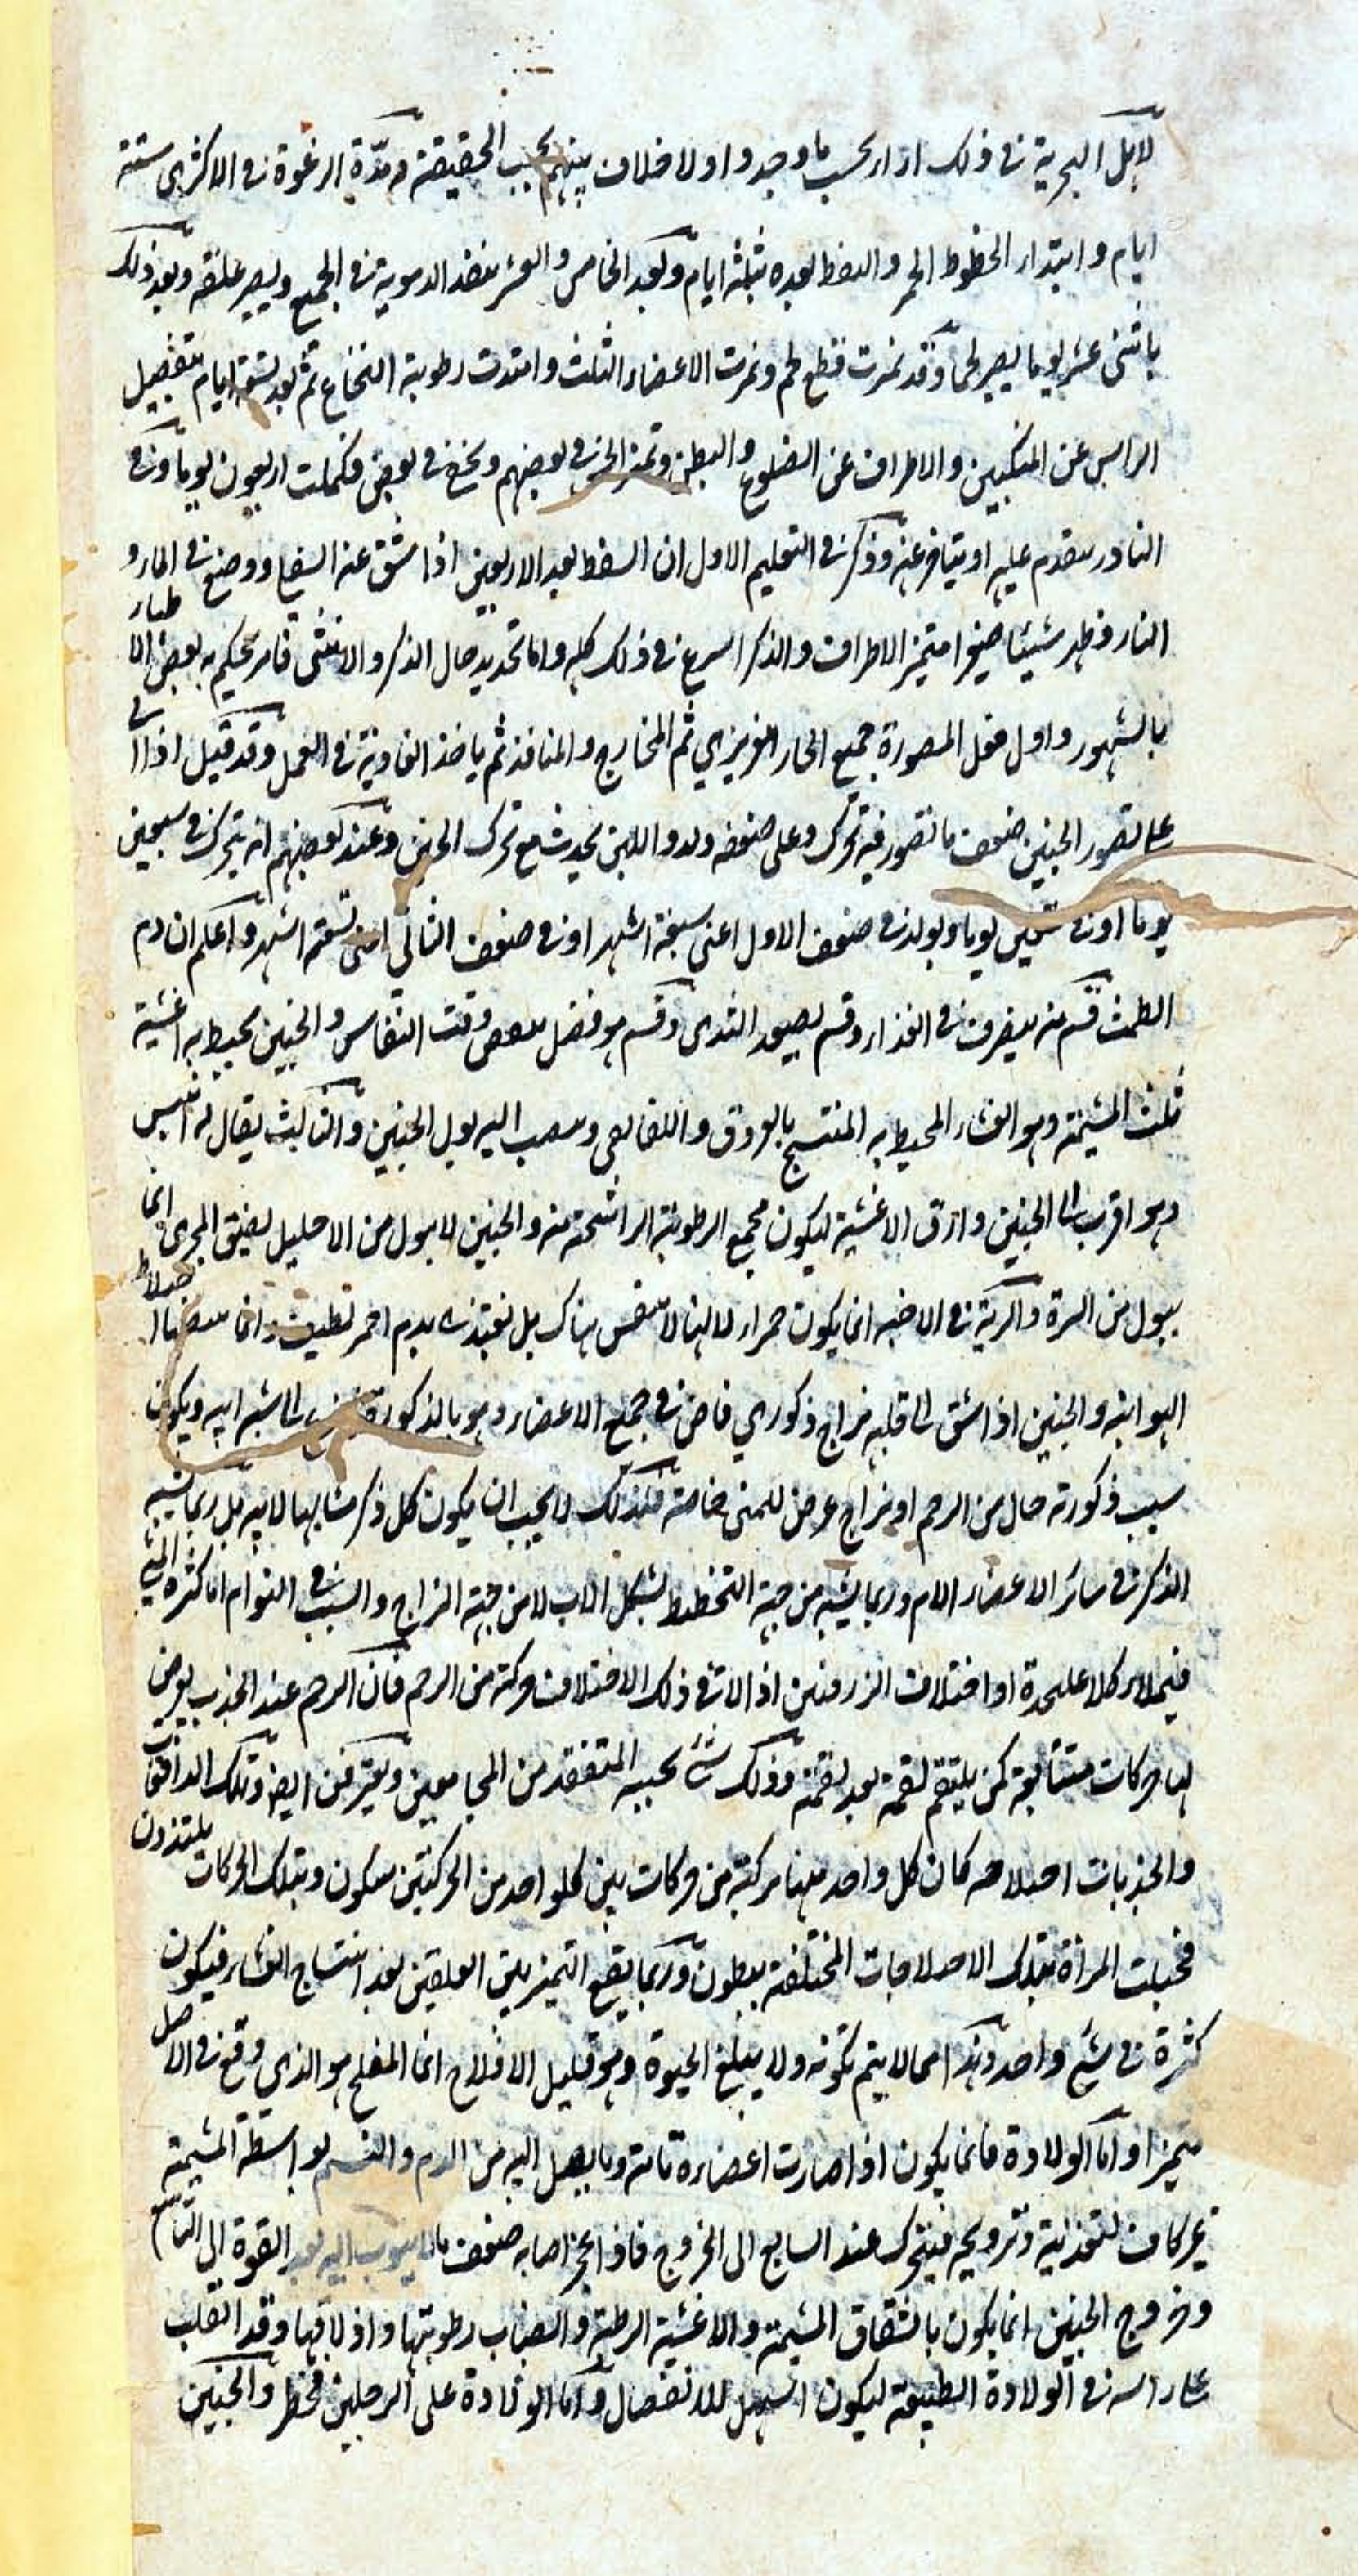 لاهل التجربة فى ذلك اراء بحسب ما وجدوا ولا خلاف بينهم بحسب الحقيقة ومدة الرغوة فى الاكثر ستة
ايام وابتداء الخطوط الحمر والنقط بعده بثلثة ايام وبعد الخامس والعشر ينفذ الدموية فى الجميع ويصير علقة وبعد ذلك
باثنى عشر يوما يصير لحما وقد تميزت قطع لحم وتميزت الاعضاء الثلث وامتدت رطوبة النخاع ثم بعد تسعة ايام يتفصيل
الراس عن المنكبين والاطراف عن الضلوع والبطن وتميز الحس فى بعضهم ويخفى فى بعض فكملت اربعون يوما وفى
النادر يتقدم عليه او يتاخر عنه وذكر فى التعليم الاول ان السقط بعد الاربعين اذا شق عنه السفا ووضع فى الماء و
النار وظهر شيئا صغيرا متميز الاطراف والذكر اسرع فى ذلك كله واما تحديد حال الذكر والانثى فامر يحكم به بعض الاطباء
بالشهور واول فعل المصورة جميع الحار الغريزي ثم المخارج والمنافذ ثم ياخذ الغاذية فى العمل وقد قيل اذا اتى
على تصور الجنين ضعف ما تصور فيه تحرك وعلى ضعفه ولد واللبن يحدث مع تحرك الجنين وعند بعضهم انه يتحرك فى سبعين
يوما او فى تسعين يوما ويولد فى ضعف الاول اعنى سبعة اشهر او فى ضعف الثانى اعنى تسعة اشهر واعلم ان دم
الطمث قسم منه ينصرف فى الغذاء وقسم يصعد الثدى وقسم هو فضل وقت النفاس والجنين يحيط به اغشية
ثلث المشيمة وهو الغشاء المحيط به المنتسج بالعروق واللفائفى وينصب اليه بول الجنين والثالث يقال له انفس
وهو اقرب الى الجنين وارق الاغشية ليكون مجمع الرطوبة الراشحة منه والجنين لا يبول من الاحليل لضيق المجرى انما
يبول من السرة والرية فى الاجنة انما يكون حمراء لانها لا يتنفس هناك بل تغتذى بدم احمر لطيف وانما
الهوائية والجنين اذا سبق الى قلبه مزاج ذكوري فاض فى جميع الاعضاء وهو بالذكورة الى شبه ابيه ويكون
سبب ذكورته حال من الرحم او مزاج عرض للمنى خاصة فلذلك لا يجب ان يكون كل ذكر مشابها لابيه بل ربما يشبه
الذكر فى سائر الاعضاء الام وربما يشبه من جهة التخطيط لشكل الاب لا من جهة المزاج والسبب فى التوام اما كثرة المنى
فيملاء كلا على حدة او اختلاف الزرقتين اذا لاقى ذلك الاختلاف حركة من الرحم فان الرحم عند الجذب يعرض
لها حركات متتابعة كمن يلتقم لقمة بعد لقمة وذلك شئ يحسه المتفقد من المجامعين ويعترفن ايضا وتلك الدافقات
والجذبات كان كل واحد منها مركبة من حركات بين كل واحد من الحركتين سكون وبتلك الحركات يلتذون
فحبلت المراة بتلك المختلفة ببطون وربما يقع التميز بين العلقتين بعد انتساج الغشاء فيكون
كثرة فى شئ واحد وهذا مما لا يتم تكونه ولا يبلغ الحيوة وهو قليل الافلاح انما المفلح هو الذي وقع فى الاصل
متميزا واما الولادة فانما يكون اذا صارت اعضاءه تامة وما يصل اليه من الدم والنسيم بواسطة المشيمة
غير كاف لتغذيته وترويحه فيتحرك عند السابع الى الخروج فاذا عجز اصابه ضعف القوة الى التاسع
وخروج الجنين انما يكون بانشقاق المشيمة والاغشية الرطبة وانصباب رطوبتها واذلاقها وقد انقلب
على راسه فى الولادة الطبيعة ليكون اسهل للانفصال واما الولادة على الرجلين فخطر والجنين